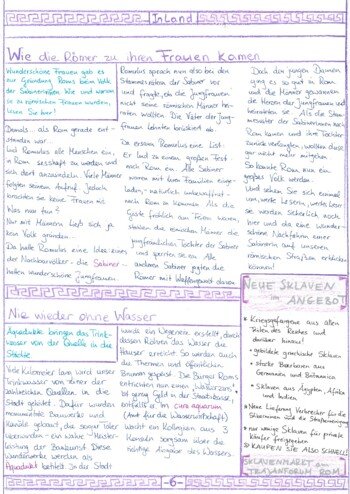 Inland
Wie die Römer zu ihren Frauen kamen
Wunderschöne Frauen gab es
zur Gründung Roms beim Volk
der Sabiner. Wie und warum
sie zu römischen Frauen wurden,
lesen Sie hier!
Damals - als Rom gerade ent-
standen war...
Lud Romulus alle Menschen ein,
in Rom sesshaft zu werden und
sich dort anzusiedeln. Viele Männer
folgten seinem Aufruf. Jedoch
brachten sie keine Frauen mit.
Was nun tun?
Nur mit Männern ließ sich ja
kein Volk gründen...
Da hatte Romulus eine Idee: eines
der Nachbarvölker - die Sabiner -
hatten wunderschöne Jungfrauen.
Romulus sprach nun also bei den
Stammesvätern der Sabiner vor
und fragte, ob die Jungfrauen
nicht seine römischen Männer hei-
raten wollten. Die Väter der Jung-
frauen lehnten brüskiert ab.
Da ersann Romulus eine List.
Er lud zu einem großen Fest
nach Rom ein. Alle Sabiner
waren mit ihren Familien einge-
laden - natürlich unbewaffnet -
nach Rom zu kommen. Als die
Gäste fröhlich am Feiern waren
stahlen die römischen Männer die
jungfräulichen Töchter der Sabiner
und sperrten sie ein. Alle
anderen Sabiner jagten die
Römer mit Waffengewalt davon.
Doch den jungen Damen
ging es so gut in Rom
und die Männer gewannen
die Herzen der Jungfrauen und
heirateten sie. Als die Stam-
mesväter der Sabiner nach
Rom kamen und ihre Töchter
zurück verlangten, wollten diese
gar nicht mehr mitgehen.
So konnte Rom nun ein
großes Volk werden.
Und sehen Sie sich einmal
um, werte Leserin, werter Leser
sie werden sicherlich noch
hier und da eine wunder-
schöne Nachfahrin einer
Sabinerin auf unseren
römischen Straßen entdecken
können!
Nie wieder ohne Wasser
Aquädukte bringen das Trink-
wasser von der Quelle in die
Städte
Viele Kilometer lang wird unser
Trinkwasser von einer der
zahlreichen Quellen in die
Stadt geleitet. Dafür wurden
monumentale Bauwerke und
Kanäle gebaut, die sogar Täler
überwinden - ein wahre Meister-
leistung der Baukunst. Diese
Wunderwerke werden als
Aquädukt betitelt. In der Stadt
wurde ein Wegenetz erstellt, durch
dessen Röhren das Wasser die
Häuser erreicht. So werden auch
die Thermen und öffentlichen
Brunnen gespeist. Die Bürger Roms
entrichten nun einen „Wasserzins“,
ist genug Geld in der Staatskasse,
entfällt er. Im cura aquarum
(Amt für die Wasserwirtschaft)
wacht ein Kollegium aus 3
Männern sorgsam über die
richtige Abgabe des Wassers.
NEUE SKLAVEN
im ANGEBOT
* Kriegsgefangene aus allen
Teilen des Reiches und
darüber hinaus!
- gebildete griechische Sklaven
- starke Barbaren aus
Germanien und Britannien
- Sklaven aus Ägypten, Afrika
und Indien
* Neue Lieferung Verbrecher für die
Steinminen und die Straßenreinigung
* nur wenige Sklaven für private
Käufer freigegeben
→ KAUFEN SIE ALSO SCHNELL!
SKLAVENMARKT am
TRAJANFORUM ROM
-6-